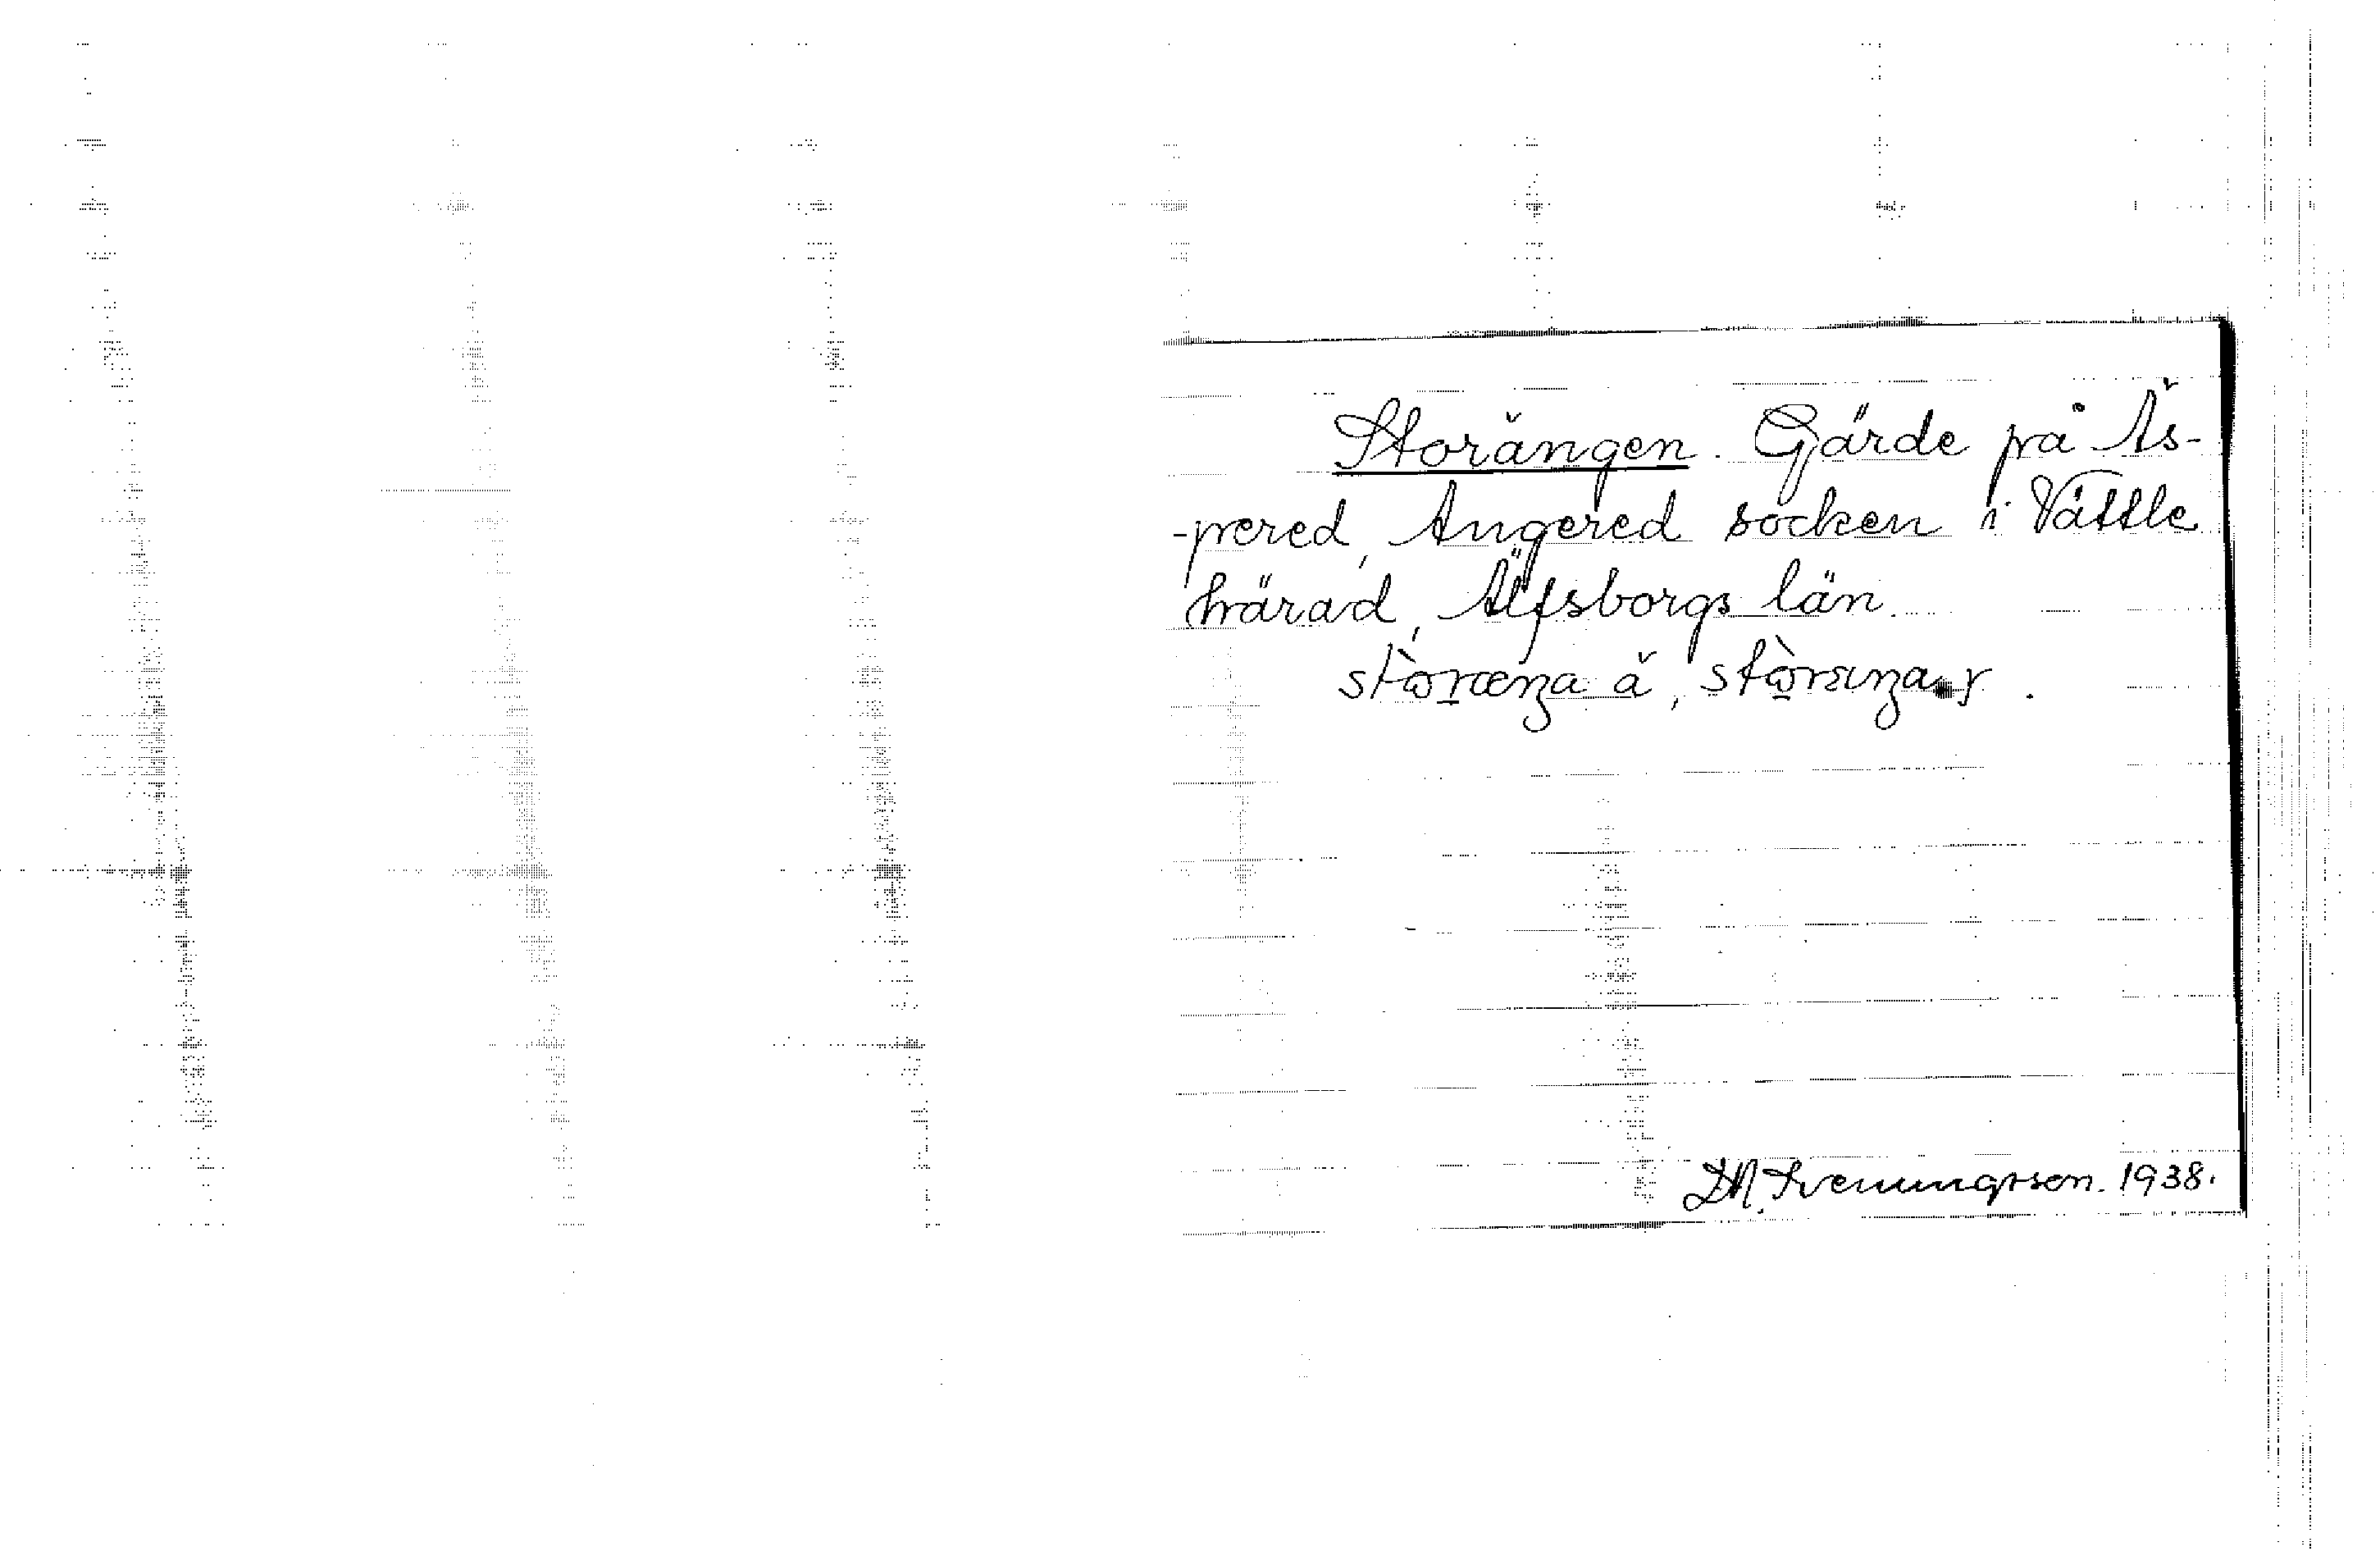 Storängen. Gärde på Äs-
-pered, Angered socken i Vättle
härad, Älfsborgs län.
stòræŋa ä, 
Svenningsson. 1938.